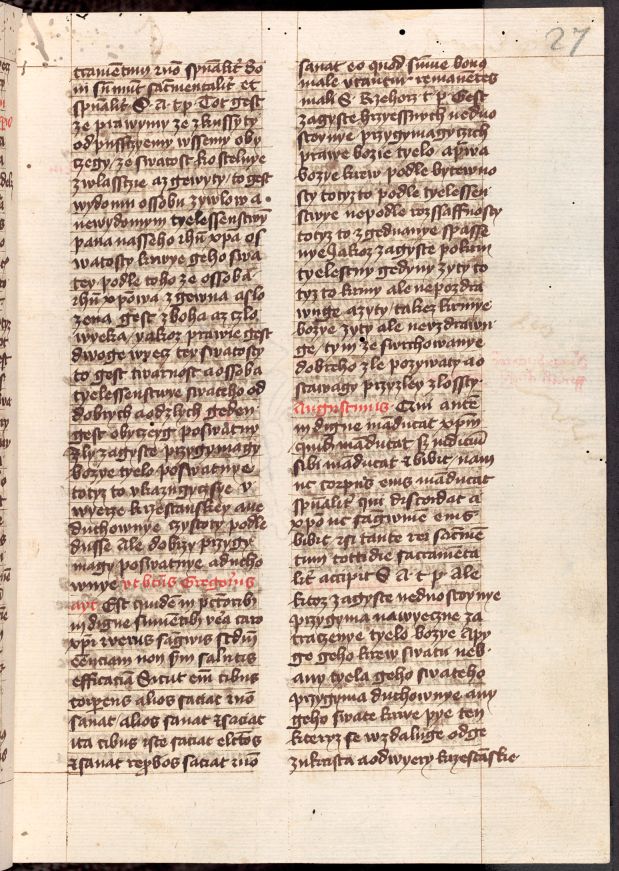 27
tramentum et non spiritualiter Bo
ni sumunt sacramentaliter et
spiritualiter S. A t p. Tot gest
ze prawymy ze zkussyty
odpussczyemy wssemy oby
czegy, ze swatost kostelnye
zwlasstie az gewyty, to gest
wydomu ossobu zywlow a
newydomym tyelessenstwy
pana nasseho ihu xpa os
watosty krwye geho swa
tey podle toho ze ossoba
ihu xpowa z gewna a slo
zena gest z boha az czlo
wyeka, yakoz prawie gest
dwoge wyecz tey swatosty
to gest twarnost a ossoba
tyelessenstwye swateho od
dobrych a od zlych geden
gest obyczeyg poswatny
Zly zagyste przygymagy
bozye tyelo poswatnye
totyz to ukazugyczysye v
wyecze krzestanskey ane
duchownye czystoty podle
dusse Ale dobrzy przygy
magy poswatnye a ducho
wnye vt btus Gregorius
ayt Est quidem in pctoribus
indigne sumentibus vera caro
xpi et verus sangwis scdm
eenciam non scdm salutis
efficaciam Sicut enim cibus
corporeus alios saciat et non
sanat alios sanat et saciat
ita cibus iste saciat electos
et sanat repbos saciat et non
sanat eo quod summe bono
male utantur remanentes
mali S. Rzehorz t p Gest
zagyste hrzyessnych neduo
stoynye przygymagiczich
prawe bozie tyelo a prwa
bozye krew podle bytewno
sty totyz to podle tyelessen
stwye ne podle rozssaffnosty
totyz to zgednanye spasse
nye Jakoz zagyste pokrm
tyelestny gedyny zyty to
tyz to krmy ale nepozdra
wnge a zyty, takez krmye
bozye zyty ale nevzdrawn
ge, tym ze swrchowanye
dobreho zle pozywaty a o
stawagy przyzley zlossty
Augustinus Qui autem
indigne manducat xpm
quibi manducat sz iudicium
sibi manducat et bibit nam
nec corpus eius manducat
spualiter qui discordat a
xpo nec sagwinem eius
bibit etsi tante rei sacramen
tum cottidie sacramenta
liter accipit S A t p Ale
ktoz zagyste neduostoynye
przygyma nawyeczne za
tracenye tyelo bozye a py
ge geho krew swatu neb
any tyela geho swateho
przygyma duchownye any
geho swate krwe pye ten
kteryz se wzdaluge odge
zukrista a od wyery krzestanske